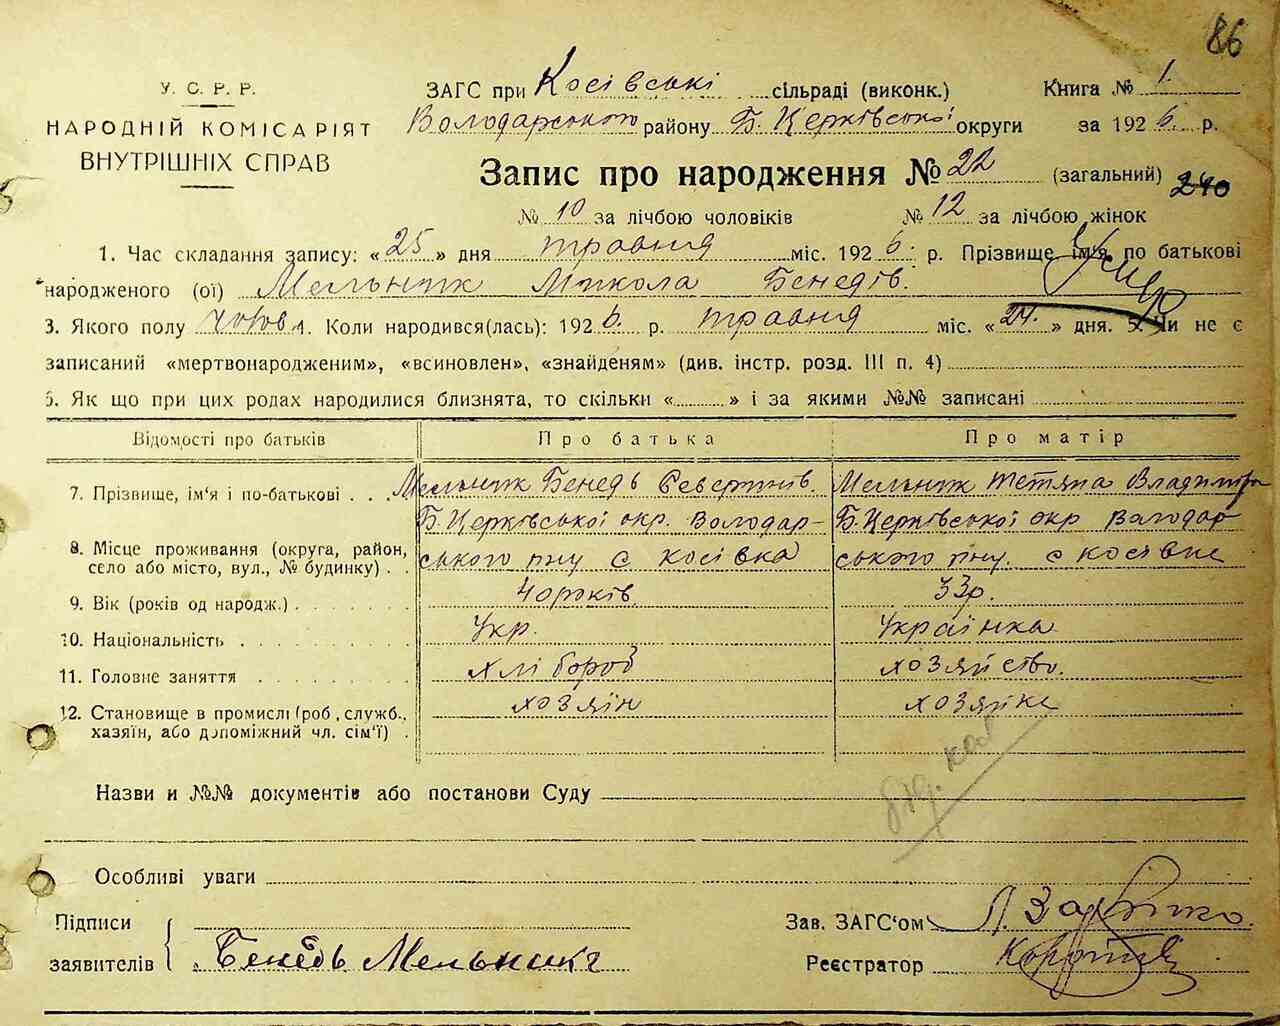 86
У. С. Р. Р.
НАРОДНІЙ КОМІСАРІЯТ
ВНУТРІШНІХ СПРАВ
ЗАГС при Косівські сільраді (виконк.) Книга № 1.
Володарського району Б. Церківської округи за 1926 р.
Запис про народження № 22 (загальний) 240
№ 10 за лічбою чоловіків № 12 за лічбою жінок
1. Час складання запису: «25» дня травня міс. 1926 р. Прізвище ім'я по батькові
народженого (ої) Мельник Микола Бенедів.
3. Якого полу чолов. 4. Коли народився(лась): 1926 р. травня міс. «24.» дня. 5. Чи не є
записаний «мертвонародженим», «всиновлен», «знайденям» (див. інстр. розд. III п. 4)
6. Як що при цих родах народилися близнята, то скільки « » і за якими №№ записані
Відомості про батьків Про батька Про матір
7. Прізвище, ім'я і по-батькові Мельник Бенедь Севертинів. Мельник Тетяна Владимир
Б. Церківської окр. Володар- Б. Церківської окр Володар-
8. Місце проживання (округа, район, село або місто, вул., № будинку) ського р-ну с Косівка ського р-ну. с Косівке
9. Вік (років од народж.) 40 років 33 р.
10. Національність Укр. Українка
11. Головне заняття хлібороб хозяйство.
12. Становище в промислі (роб., служб., хазяїн, або допоміжний чл. сім'ї) хозяїн хозяйке
Назви и №№ документів або постанови Суду
Особливі уваги
Підписи
заявителів Бенедь Мельник
Зав. ЗАГС'ом
Реєстратор